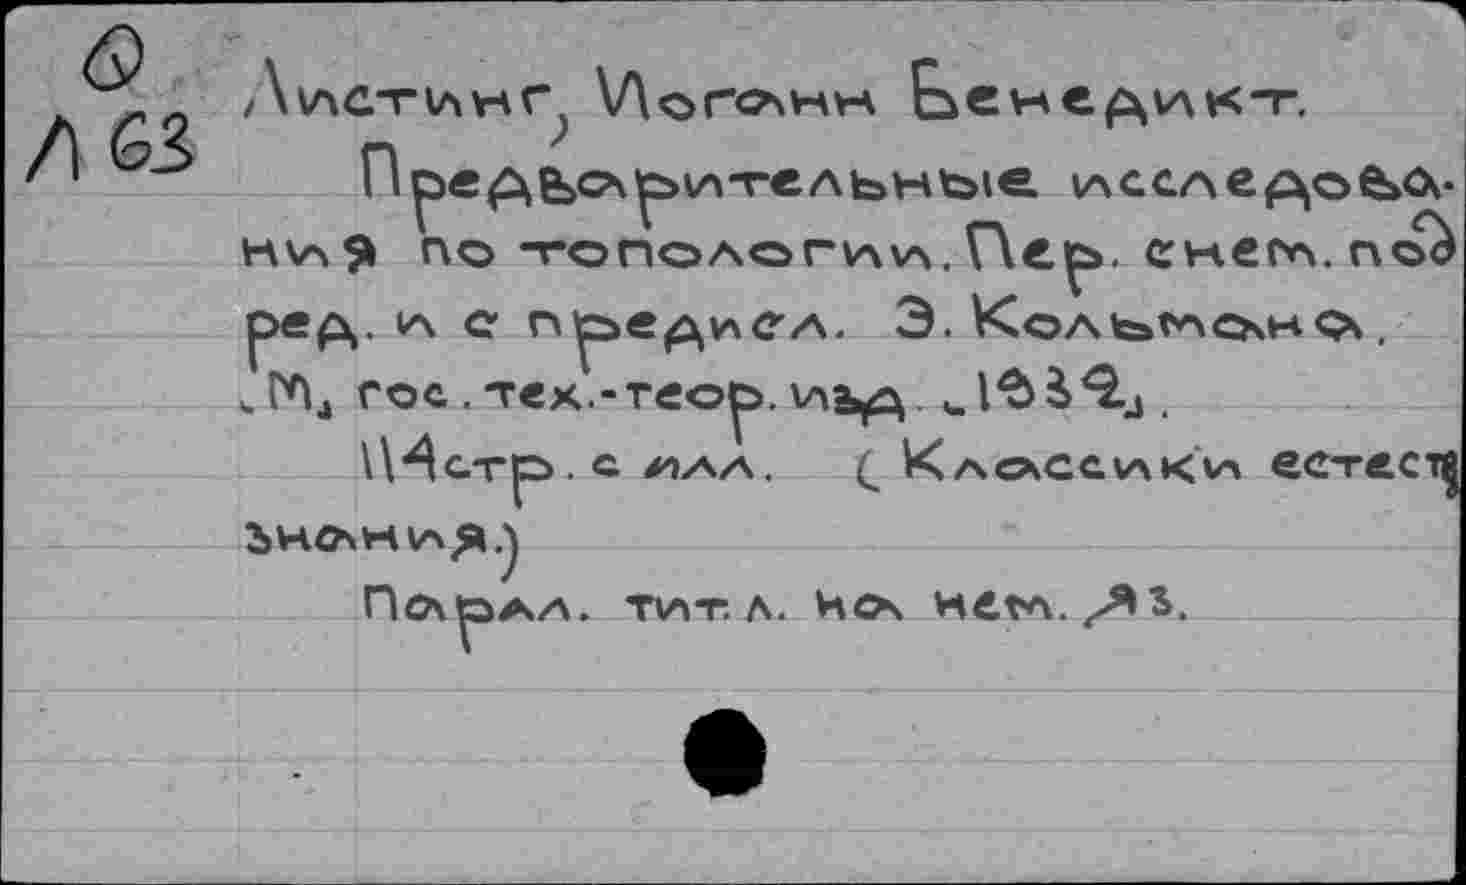 Л 63
Листинг, Иоганн Бенедикт.
Предварительные исследова-
ния по топологии. Пер. с нем. под
ред. и с предисл. Э. Кольмана,
М, гос. тех.-теор. изд, 1932,
114стр. с илл. (Классики естест
знания.)
Паралл. тит. л. на нем. яз.